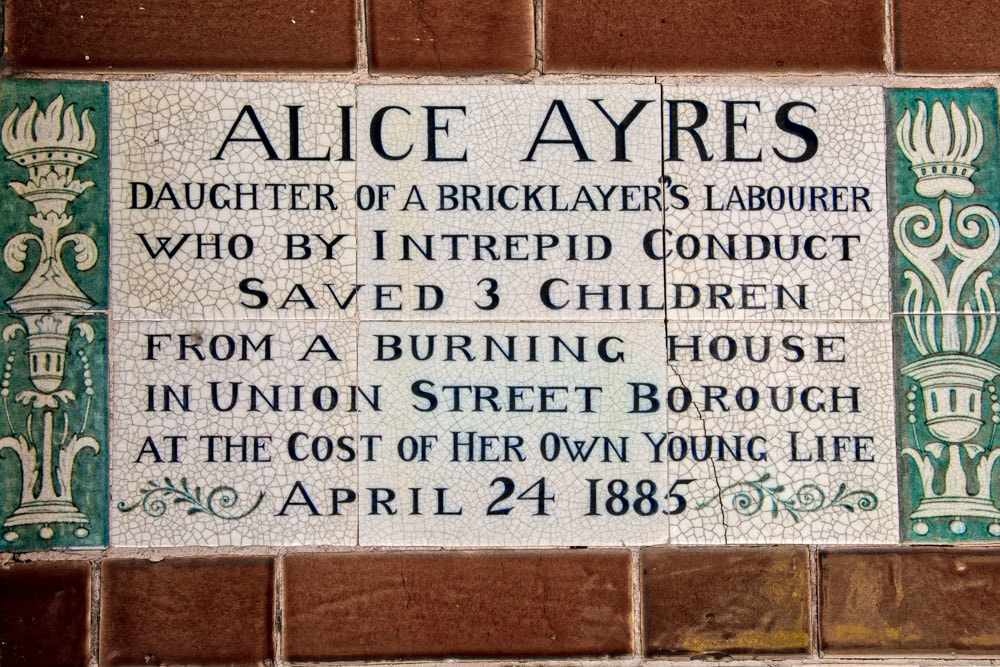 ALICE AYRES
DAUGHTER OF A BRICKLAYER'S LABOURER
WHO BY INTREPID CONDUCT
SAVED 3 CHILDREN
FROM A BURNING HOUSE
IN UNION STREET BOROUGH
AT THE COST OF HER OWN YOUNG LIFE
APRIL 24 1885